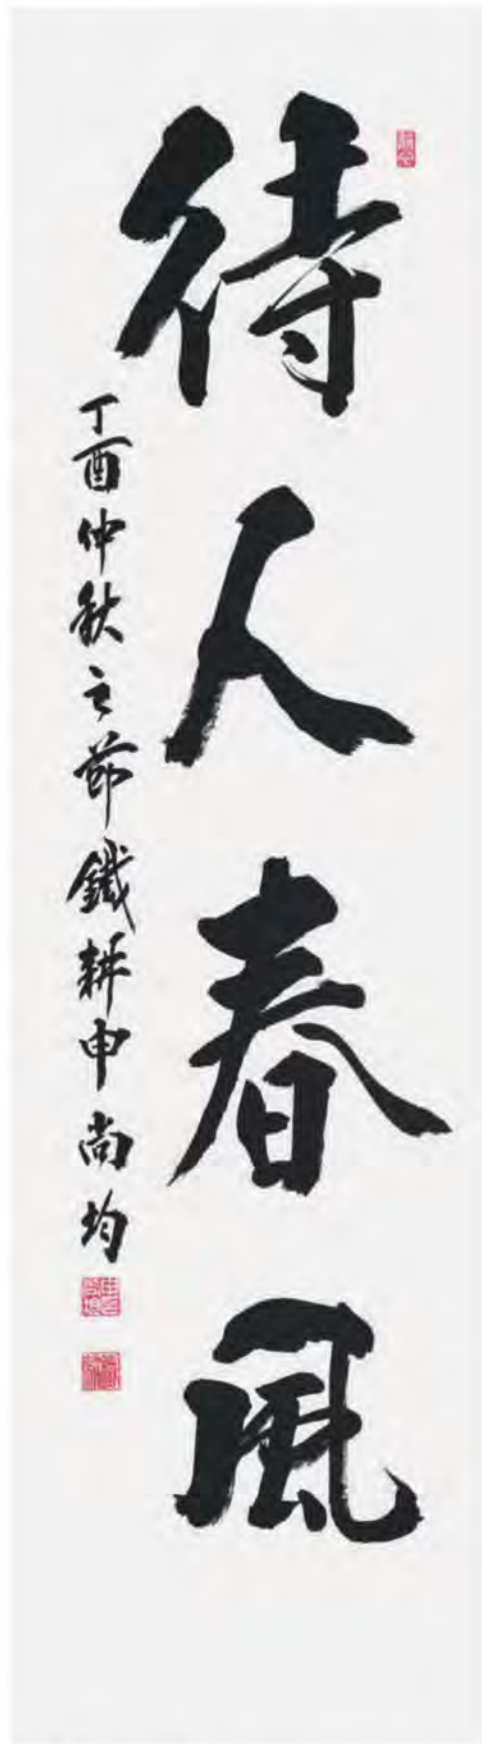 待人春風
丁酉仲秋之節鐵耕申尚均